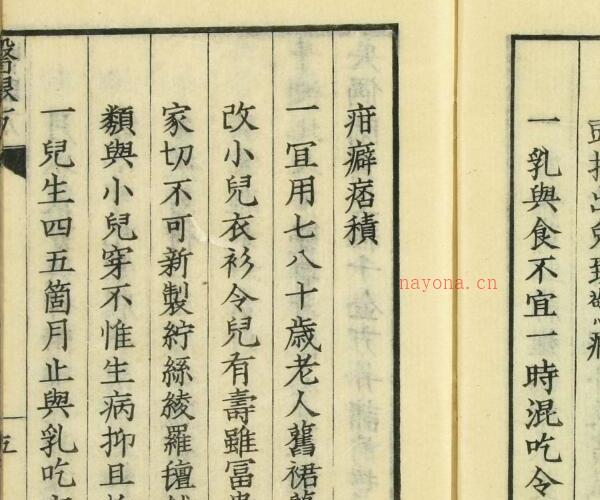 頭
一乳與食不宜一時混吃令
疳癖痞積
一冝用七八十歲老人舊裙
改小兒衣衫令兒有壽雖冨
家切不可新製紵絲綾羅氊
類與小兒穿不惟生病抑且
一兒生四五箇月止與乳吃
五
nayona.cn